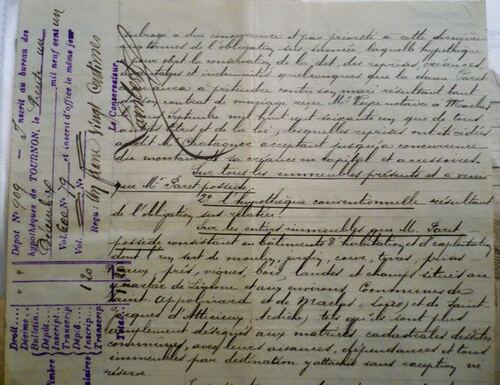 à due concurrence et par priorité à cette dernière
termes de l'obligation sus énoncée laquelle hypothèque
pour objet la conservation de la dot, des reprises, créances
avantages et indemnités quelconques que la dame Paret
aura à prétendre contre son mari résultant tant
son contrat de mariage reçu Me notaire à Maclas
Septembre mil huit cent soixante un que de tous
autres titres et de la loi, lesquelles reprises ont été cédées
au dit Me Chatagner acceptant jusqu'à concurrence
du montant de sa créance en capital et accessoires.
Sur tous les immeubles présents et à venir
que Mr Paret possède.
2° l'hypothèque conventionnelle résultant
de l'obligation sus relatée:
Sur les entiers immeubles que Mr Paret
possède consistant en bâtiments d'habitation et d'exploitation
cour, prises
d'eaux, prés, vignes, bois, landes et champs situés au
et aux environs, Communes de
Saint Appolinard et de Maclas (Loire) et de Saint
Jacques d'Atticieux, Ardèche, tels qu'ils sont plus
amplement désignés aux matrices cadastrales desdites
communes, avec leurs aisances, dépendances et tous
immeubles par destination y attachés sans exception ni
réserve.
Dépôt N° 909 - Inscrit au bureau des
hypothèques de TOURNON, le Trente un
Décembre mil neuf cent un
Vol. 600 N° 79 et inscrit d'office le même jour
Vol. N°
Reçu: Un franc Vingt Centimes
Le Conservateur,
Droit
Décime
Bulletin
Dépôt
Inscrip
Transcrip
Dépôt
Inscrip
Transcrip
1 20